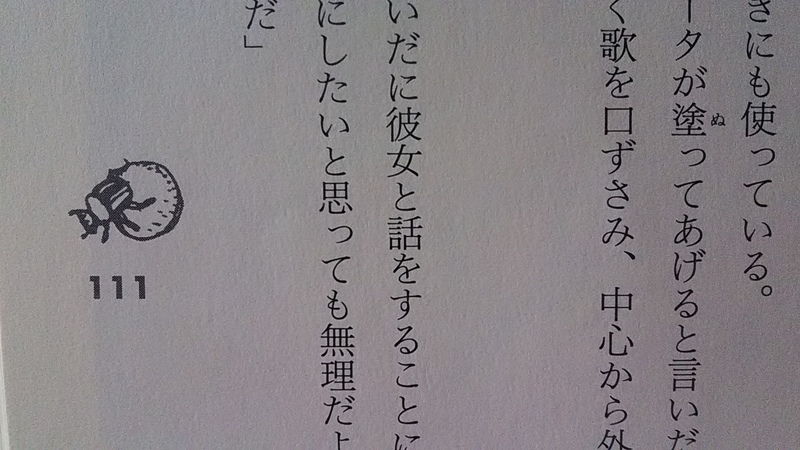 きにも使っている。
ータが塗ってあげると言いだ
く歌を口ずさみ、中心から外
いだに彼女と話をすることに
にしたいと思っても無理だよ
だ」
ぬ
111